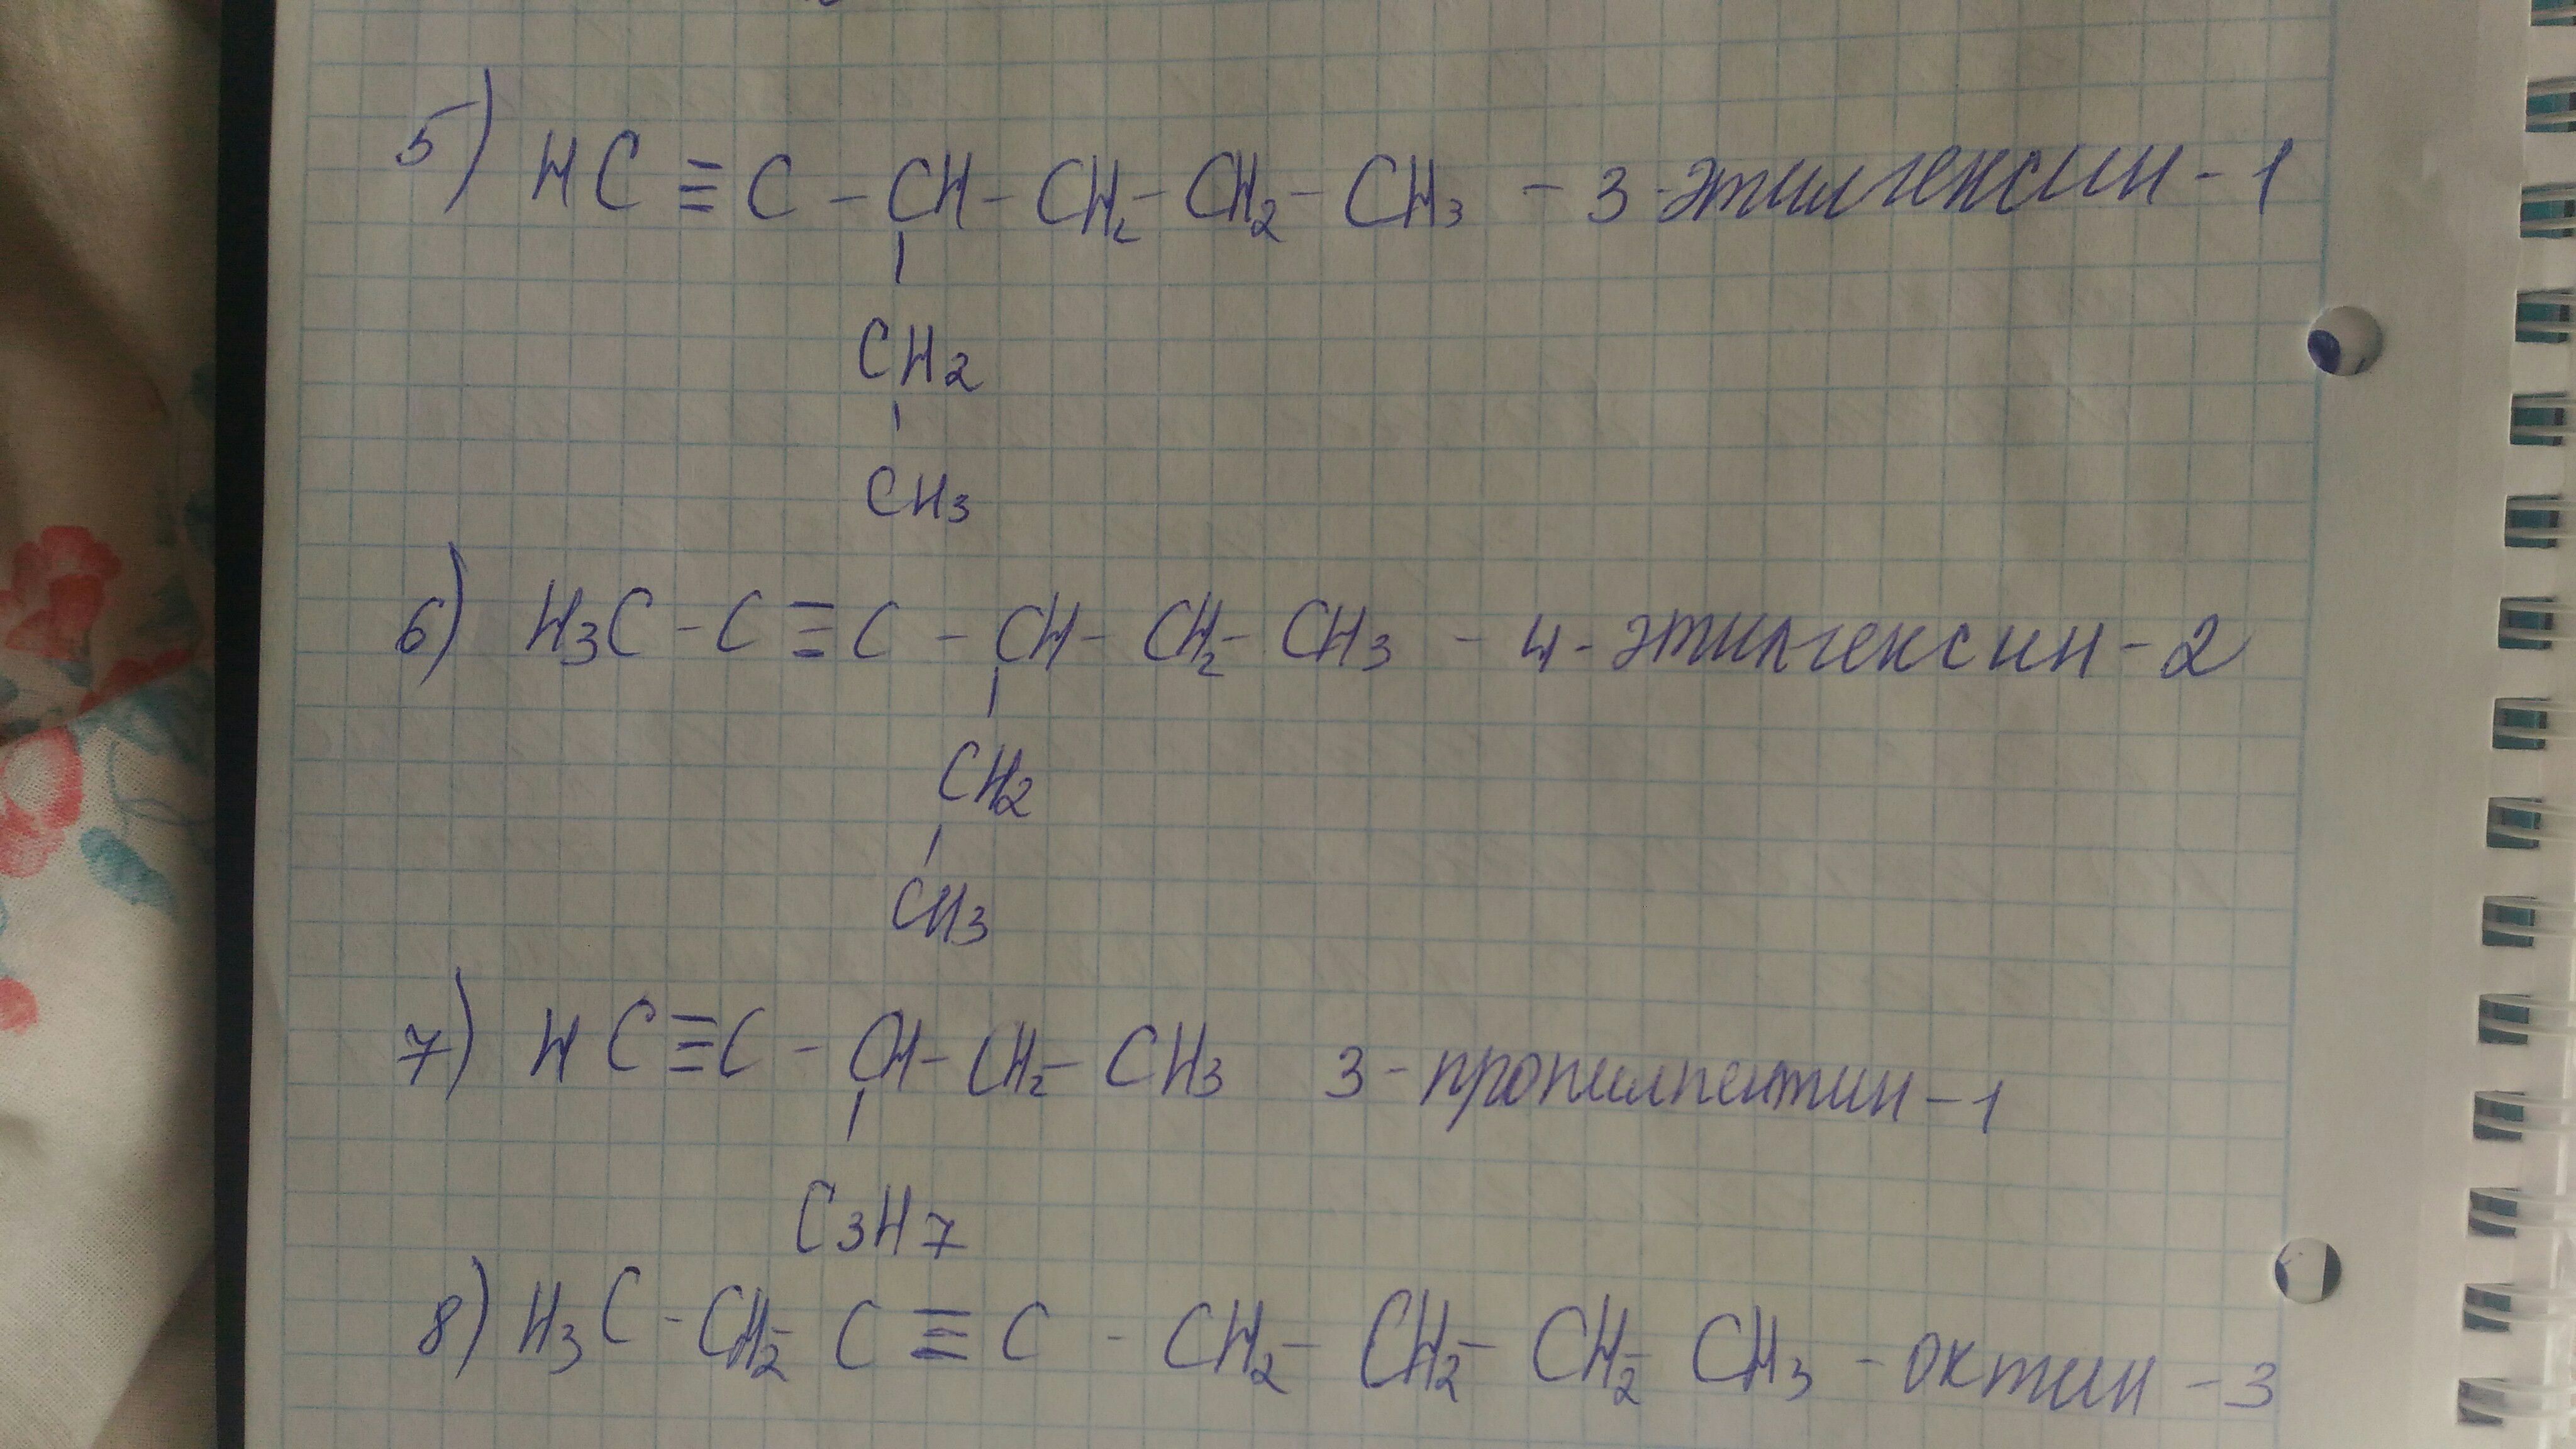 5) HC ≡ C - CH - CH2 - CH2 - CH3 - 3-этилгексин-1
CH2
CH3
6) H3C - C ≡ C - CH - CH2 - CH3 - 4-этилгексин-2
CH2
CH3
7) HC ≡ C - CH - CH2 - CH3 3-пропилпентин-1
C3H7
8) H3C - CH2 - C ≡ C - CH2 - CH2 - CH2 - CH3 - октин-3